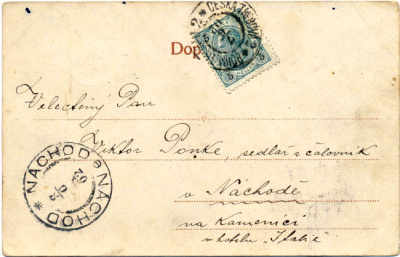 Dop
ČESKÁ
5 5
Velectěný Pan
Viktor Ponke, sedlář a čalovník
v Náchodě
na Kamenici
v hotelu
NÁCHOD * NACHOD *